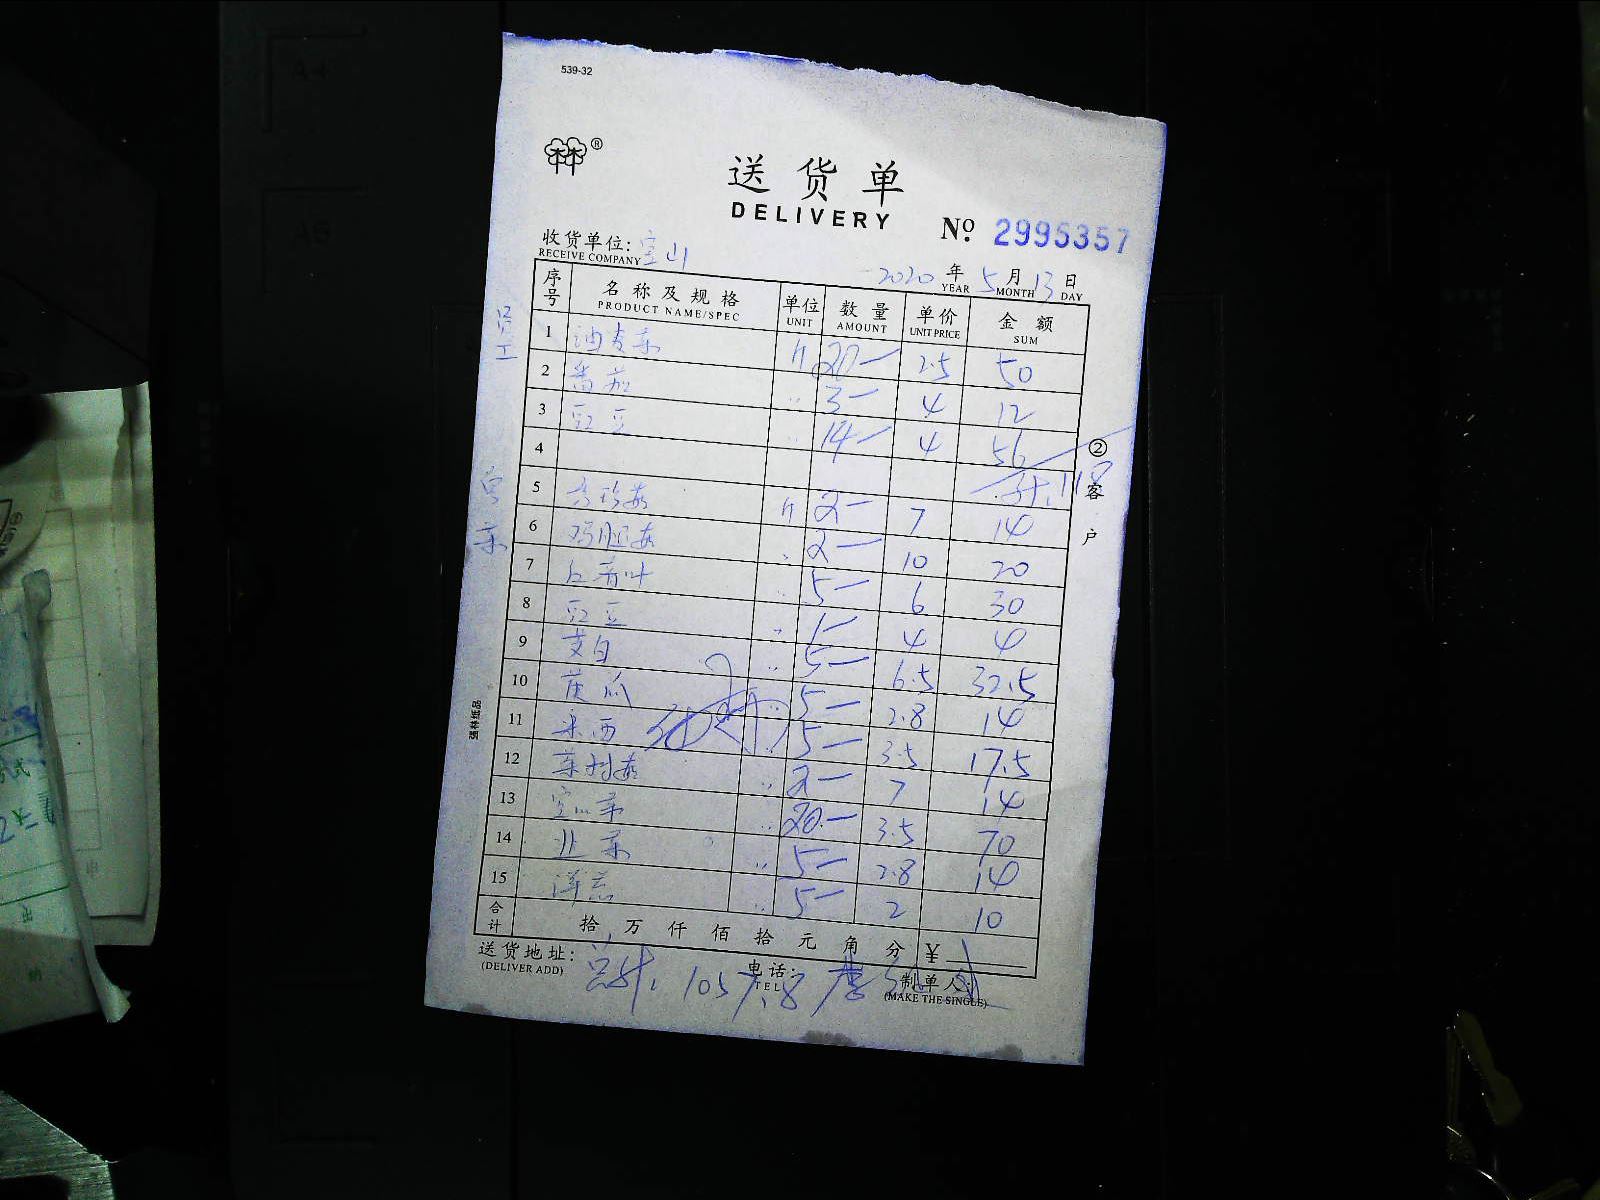 539-32
®
送货单
DELIVERY
№ 2995357
收货单位: 宝山
RECEIVE COMPANY
2020 年 5 月 13 日
YEAR MONTH DAY
序号 名称及规格 单位 数量 单价 金额
PRODUCT NAME/SPEC UNIT AMOUNT UNIT PRICE SUM
1 油麦菜 斤 20 2.5 50
2 番茄 〃 3 4 12
3 豇豆 〃 14 4 56
4 118
5 斤 2 7 14
6 鸡腿菇 〃 2 10 20
7 5 6 30
8 豇豆 〃 1 4 4
9 茭白 〃 5 6.5 32.5
10 黄瓜 〃 5 2.8 14
11 〃 5 3.5 17.5
12 茶树菇 〃 2 7 14
13 空心菜 〃 20 3.5 70
14 韭菜 〃 5 2.8 14
15 洋葱 〃 5 2 10
合计 拾 万 仟 佰 拾 元 角 分 ¥
送货地址:
(DELIVER ADD)
电话:
TEL
制单人:
(MAKE THE SINGLE)
②客户
强林纸品